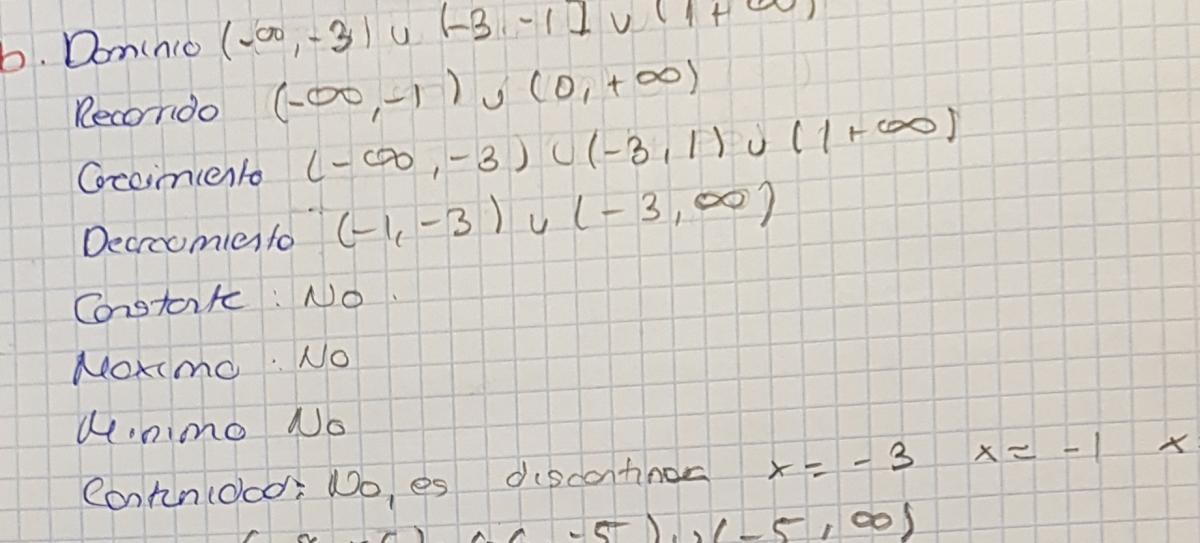 b. Dominio (-∞, -3) ∪ (-3, -1] ∪ (1 + ∞)
Recorrido (-∞, -1) ∪ (0, +∞)
Crecimiento (-∞, -3) ∪ (-3, 1) ∪ (1 + ∞)
Decrecimiento (-1, -3) ∪ (-3, ∞)
Constante : No.
Maximo : No
Minimo No
Contenidad: No, es discontinua x = -3 x = -1 x
-5) ∪ (-5, ∞)